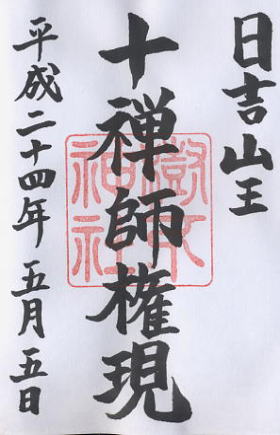 日吉山王
十禅師権現
樹下
神社
平成二十四年 五月 五日